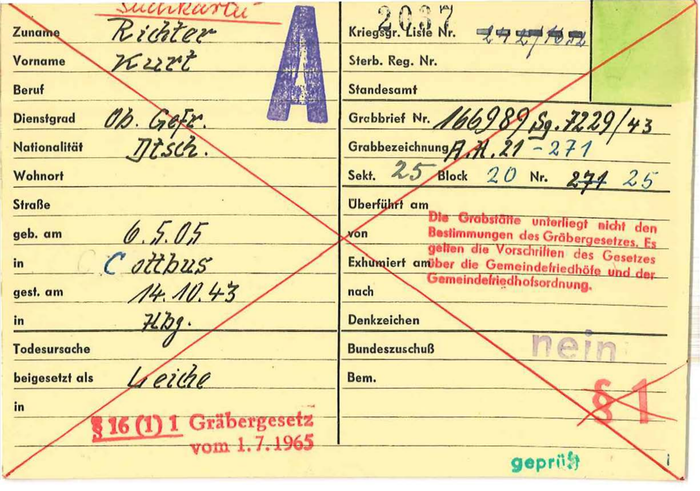 Suchkartei
Zuname Richter
Vorname Kurt
Beruf
Dienstgrad Ob. Gefr.
Nationalität Dtsch.
Wohnort
Straße
geb. am 6.5.05
in Cottbus
gest. am 14.10.43
in Hbg.
Todesursache
beigesetzt als Leiche
in
§ 16 (1) 1 Gräbergesetz
vom 1.7.1965
A
2037
Kriegsgr. Liste Nr.
Sterb. Reg. Nr.
Standesamt
Grabbrief Nr. 166989 Sg. 7229/43
Grabbezeichnung A.H. 21 - 271
Sekt. 25 Block 20 Nr. 271 25
Überführt am
von
Exhumiert am
nach
Die Grabstätte unterliegt nicht den
Bestimmungen des Gräbergesetzes. Es
gelten die Vorschriften des Gesetzes
über die Gemeindefriedhöfe und der
Gemeindefriedhofsordnung.
Denkzeichen
Bundeszuschuß nein
Bem.
§ 1
geprüft